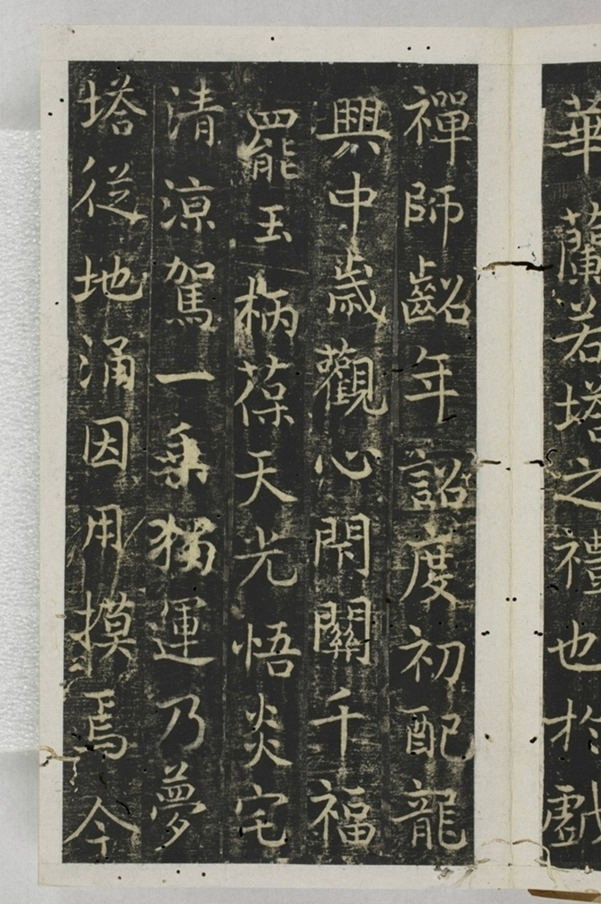 華蘭若塔之禮也於戲
禪師齠年詔度初配龍
興中歲觀心閇關千福
罷玉柄葆天光悟炎宅
清涼駕一乘獨運乃夢
塔從地涌因用摸焉今